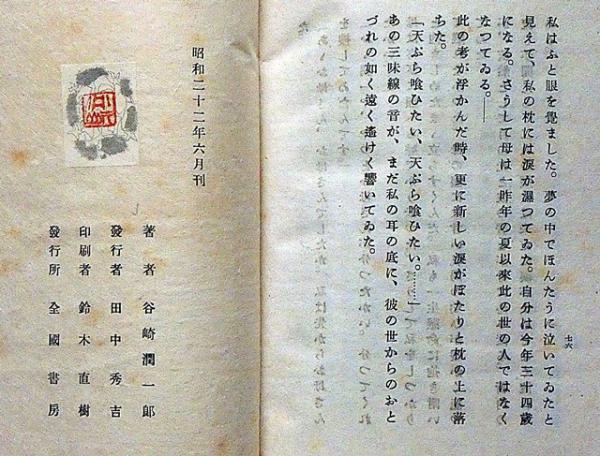 七六
私はふと眼を覺ました。夢の中でほんたうに泣いてゐたと
見えて、私の枕には涙が濕つてゐた。自分は今年三十四歳
になる。さうして母は一昨年の夏以來此の世の人ではなく
なつてゐる。――
此の考が浮かんだ時、更に新しい涙がぽたりと枕の上に落
ちた。
「天ぷら喰ひたい、天ぷら喰ひたい。………」
あの三味線の音が、まだ私の耳の底に、彼の世からのおと
づれの如く遠く遙けく響いてゐた。
昭和二十二年六月刊
著者 谷崎潤一郎
發行者 田中秀吉
印刷者 鈴木直樹
發行所 全國書房